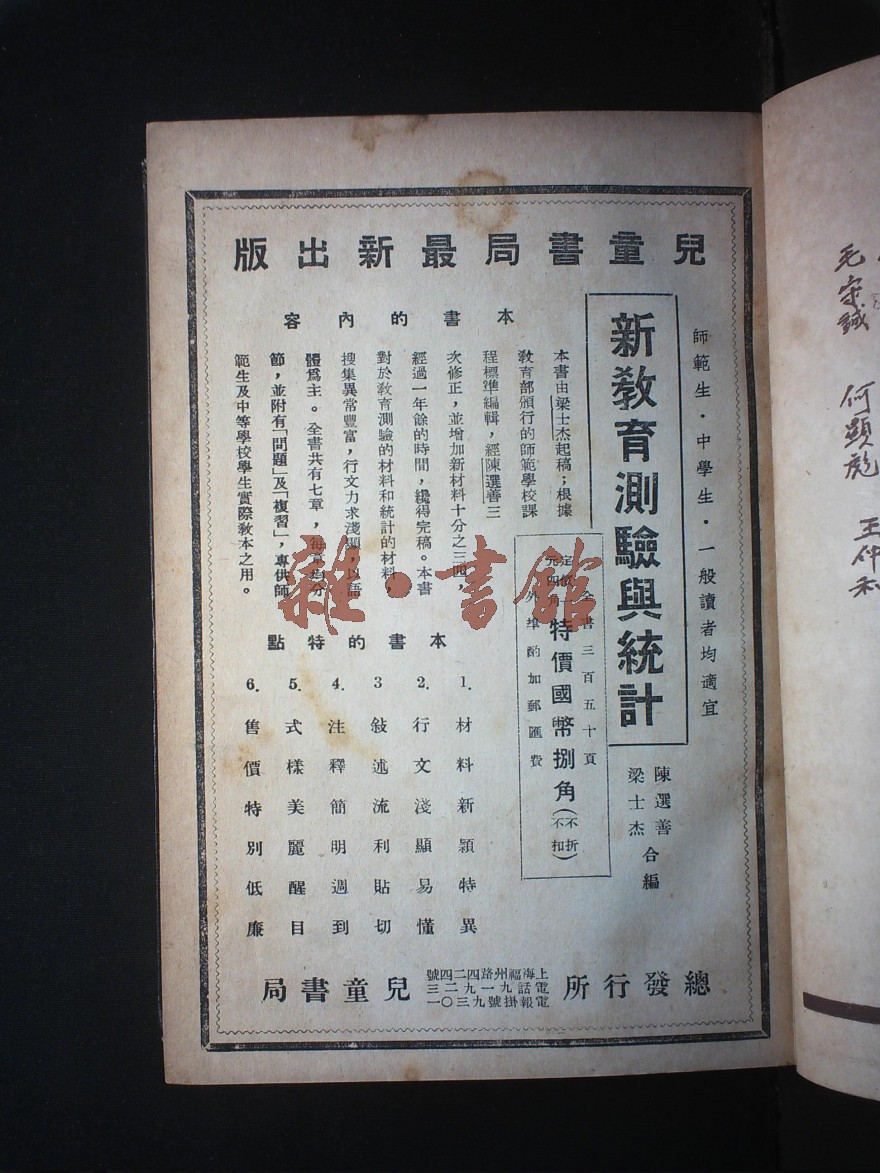 兒童書局最新出版
師範生・中學生・一般讀者均適宜
新教育測驗與統計
陳選善
梁士杰
合編
全書三百五十頁
定價一
元四角
特價國幣捌角
(不折
不扣)
外埠酌加郵匯費
本書的內容
本書由梁士杰起稿；根據
教育部頒行的師範學校課
程標準編輯，經陳選善三
次修正，並增加新材料十分之三四，
經過一年餘的時間，纔得完稿。本書
對於教育測驗的材料和統計的材料，
搜集異常豐富，行文力求淺顯，以語
體爲主。全書共有七章，每章均分
節，並附有「問題」及「複習」，專供師
範生及中等學校學生實際教本之用。
本書的特點
1. 材料新穎特異
2. 行文淺顯易懂
3 敍述流利貼切
4. 注釋簡明週到
5. 式樣美麗醒目
6. 售價特別低廉
總發行所
上海福州路四二四號
電話九一九二三
電報掛號九三〇一
兒童書局
雜・書館
毛宗鋮
何顯彪
王仲和